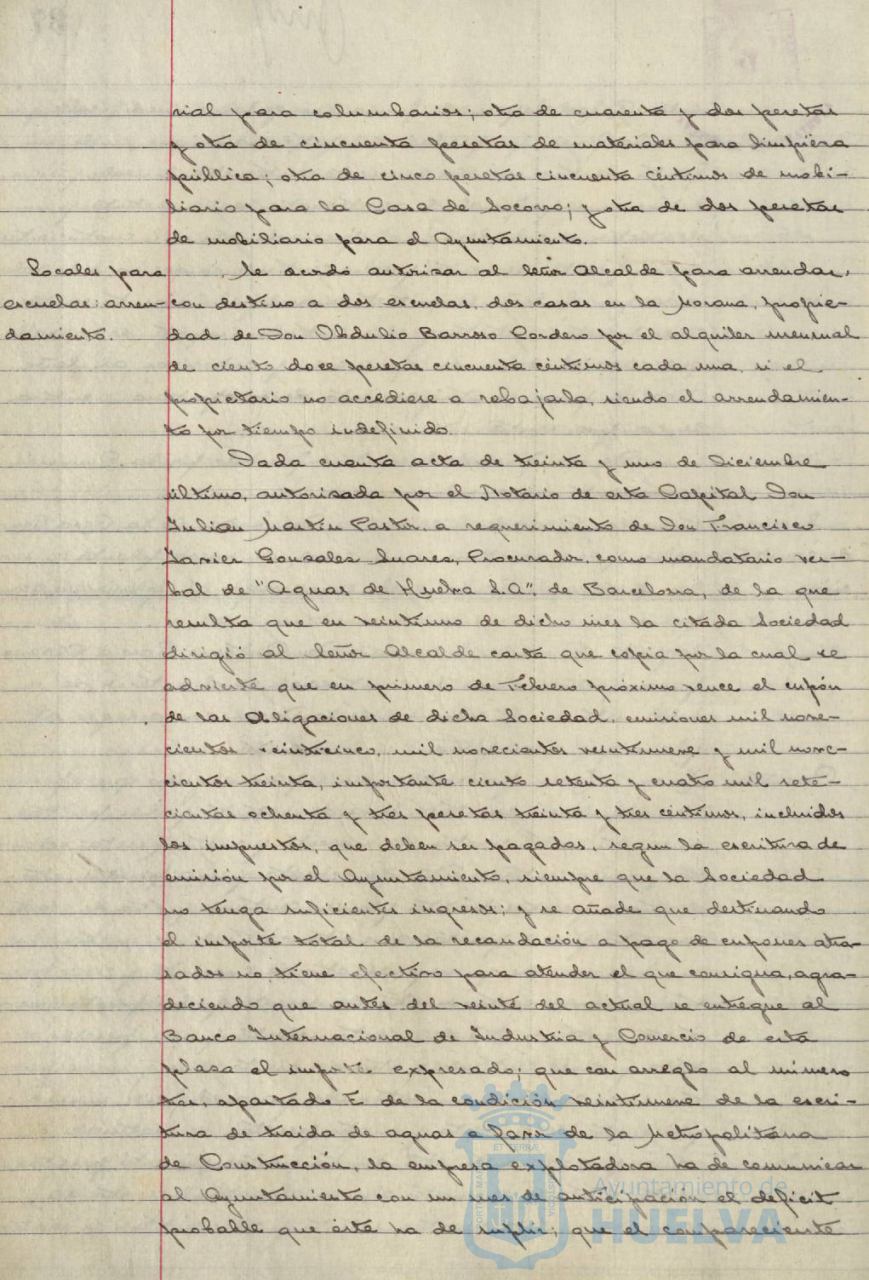 rial para columbarios; otra de cuarenta y dos pesetas
y otra de cincuenta pesetas de materiales para limpieza
pública; otra de cinco pesetas cincuenta céntimos de mobi-
liario para la Casa de Socorro; y otra de dos pesetas
de mobiliario para el Ayuntamiento.
Locales para
escuelas: arren-
damiento.
Se acordó autorizar al Señor Alcalde para arrendar,
con destino a dos escuelas, dos casas en la Morana, propie-
dad de Don Obdulio Barroso Cordero por el alquiler mensual
de ciento doce pesetas cincuenta céntimos cada una, si el
propietario no accediese a rebajarla, siendo el arrendamien-
to por tiempo indefinido.
Dada cuenta acta de treinta y uno de Diciembre
último, autorizada por el Notario de esta Capital Don
Julian Martin Pastor, a requerimiento de Don Francisco
Javier Gonzales Suares, Procurador, como mandatario ver-
bal de "Aguas de Huelva S.A", de Barcelona, de la que
resulta que en veintiuno de dicho mes la citada Sociedad
dirigió al Señor Alcalde carta que copia por la cual se
advierte que en primero de Febrero próximo vence el cupón
de las Obligaciones de dicha Sociedad, emisiones mil nove-
cientos veinticinco, mil novecientos veintinueve y mil nove-
cientos treinta, importante ciento setenta y cuatro mil sete-
cientas ochenta y tres pesetas treinta y tres céntimos, incluidos
los impuestos, que deben ser pagados, segun la escritura de
emisión por el Ayuntamiento, siempre que la Sociedad
no tenga suficientes ingresos; y se añade que destinando
el importe total de la recaudación a pago de cupones atra-
sados no tiene efectivo para atender el que consigna, agra-
deciendo que antes del veinte del actual se entregue al
Banco Internacional de Industria y Comercio de esta
plaza el importe expresado; que con arreglo al número
tres, apartado E de la condición veintinueve de la escri-
tura de traida de aguas a favor de la Metropolitana
de Construcción, la empresa explotadora ha de comunicar
al Ayuntamiento con un mes de anticipación el deficit
probable que éste ha de suplir; que el compareciente
Ayuntamiento de
HUELVA